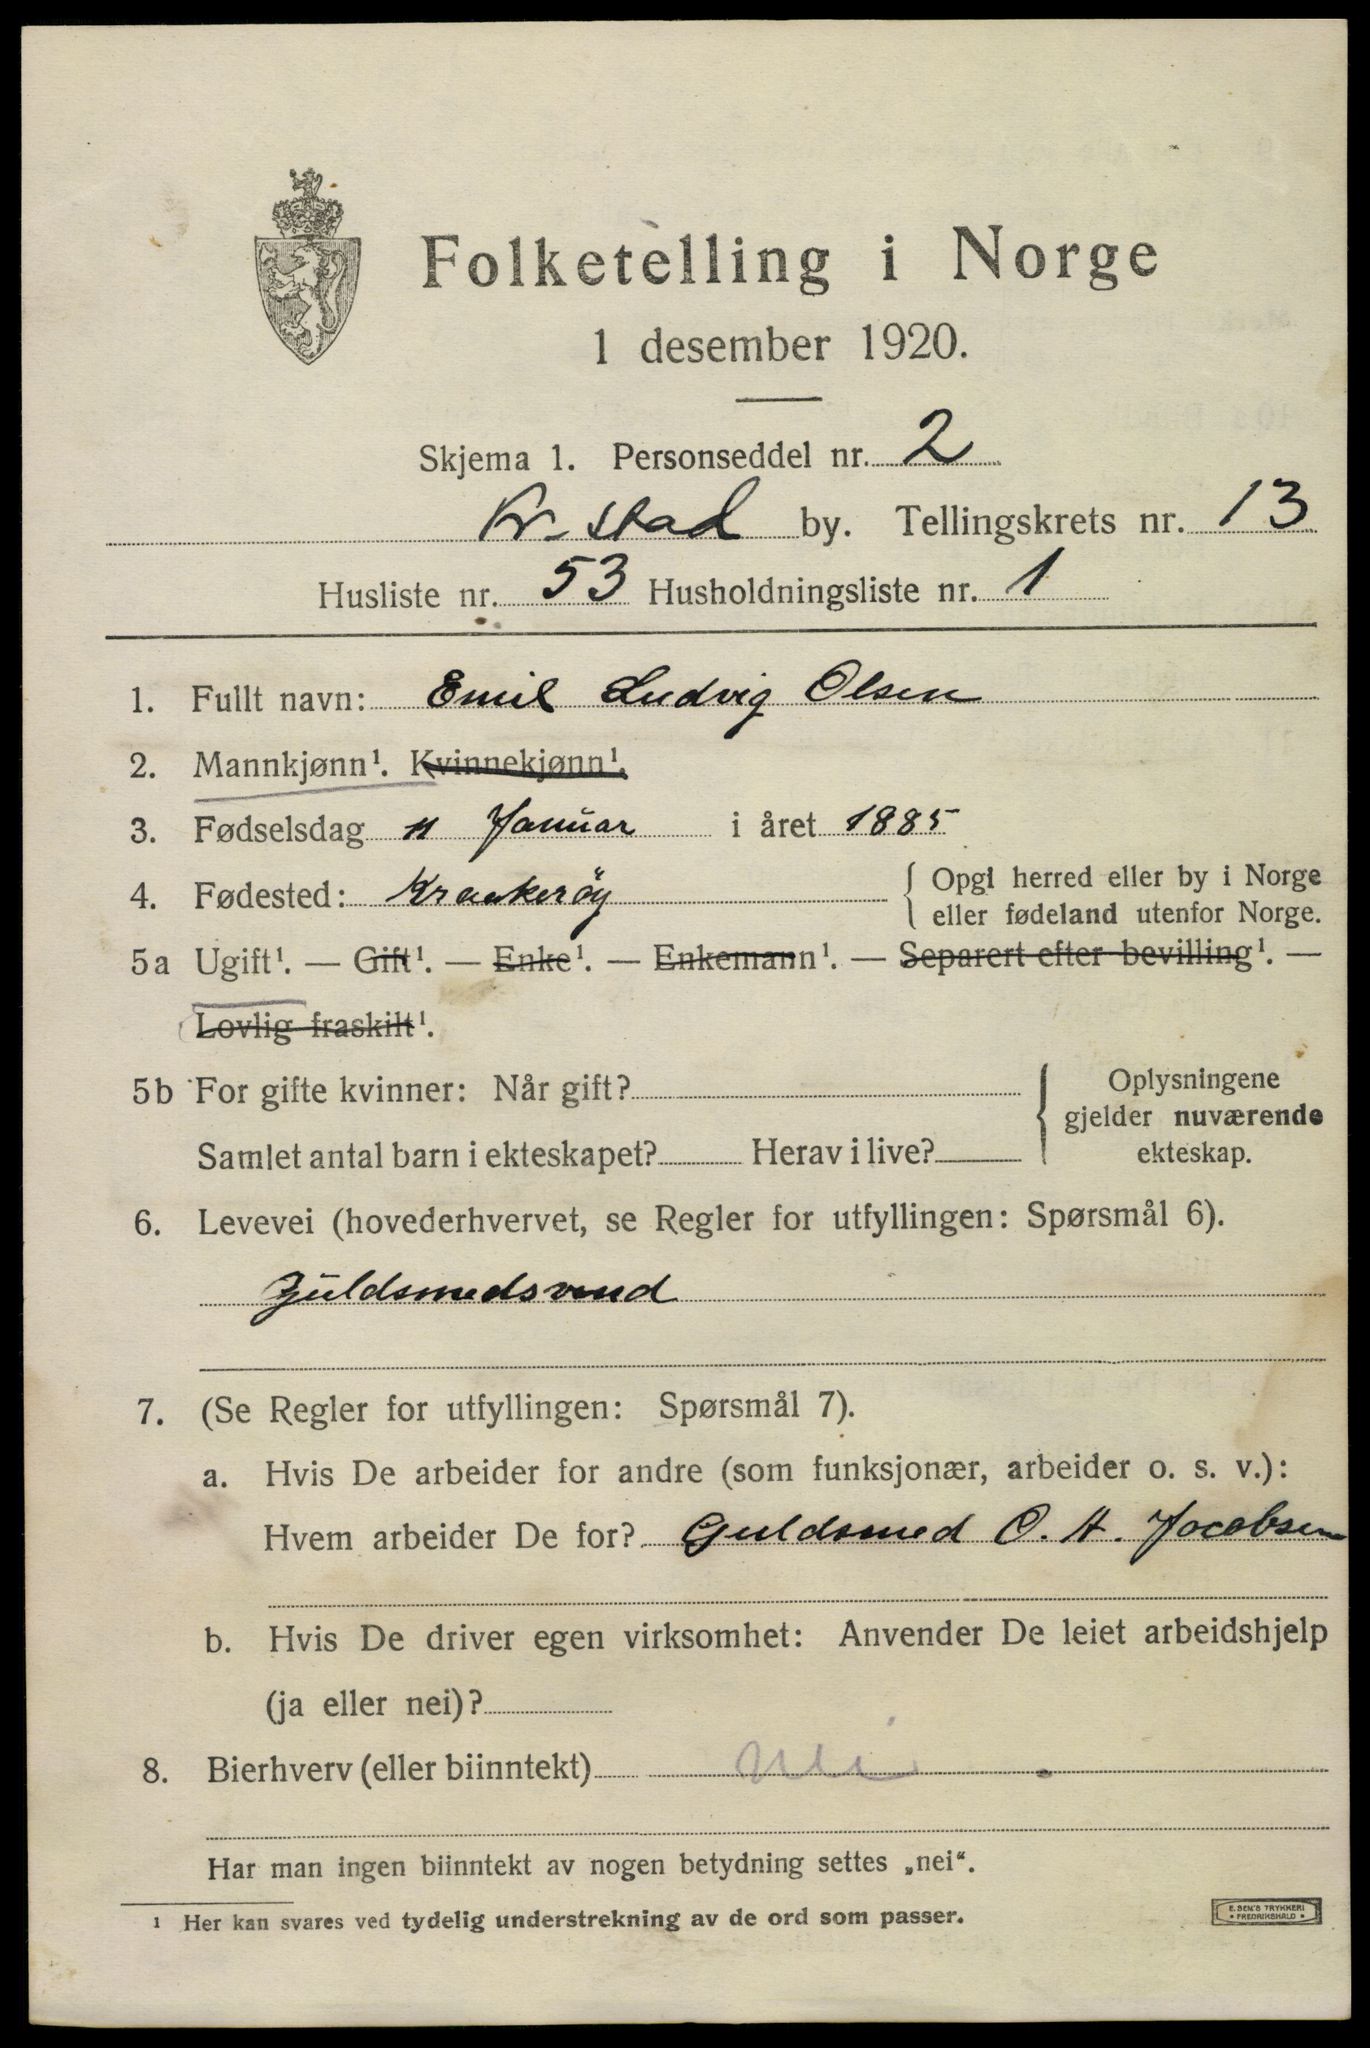 Folketelling i Norge
1 desember 1920.
Skjema 1. Personseddel nr. 2
Fr. stad by. Tellingskrets nr. 13
Husliste nr. 53 Husholdningsliste nr. 1
1. Fullt navn: Emil Ludvig Olsen
2. Mannkjønn¹. Kvinnekjønn¹.
3. Fødselsdag 11 Januar i året 1885
4. Fødested: Kraakerøy { Opgi herred eller by i Norge
eller fødeland utenfor Norge.
5a Ugift¹. — Gift¹. — Enke¹. — Enkemann¹. — Separert efter bevilling¹. —
Lovlig fraskilt¹.
5b For gifte kvinner: Når gift? { Oplysningene
gjelder nuværende
Samlet antal barn i ekteskapet? Herav i live? ekteskap.
6. Levevei (hovederhvervet, se Regler for utfyllingen: Spørsmål 6).
Guldsmedsvend
7. (Se Regler for utfyllingen: Spørsmål 7).
a. Hvis De arbeider for andre (som funksjonær, arbeider o. s. v.):
Hvem arbeider De for? Guldsmed O. A. Jacobsen
b. Hvis De driver egen virksomhet: Anvender De leiet arbeidshjelp
(ja eller nei)?
8. Bierhverv (eller biinntekt) Nei
Har man ingen biinntekt av nogen betydning settes „nei“.
¹ Her kan svares ved tydelig understrekning av de ord som passer.
E. SEM'S TRYKKERI
• FREDRIKSHALD •